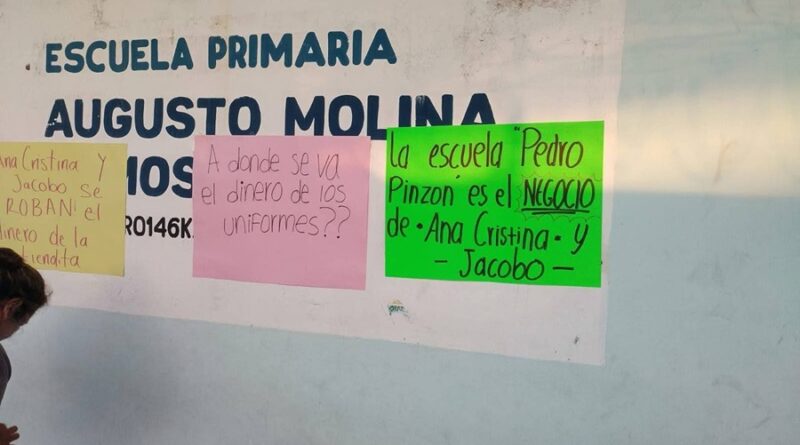 ESCUELA PRIMARIA
AUGUSTO MOLINA
MOS
R0146K
Ana Cristina Y
Jacobo se
ROBAN el
dinero de la
tiendita
A donde se va
el dinero de los
uniformes??
La escuela "Pedro
Pinzon" es el NEGOCIO
de • Ana Cristina • y
- Jacobo -